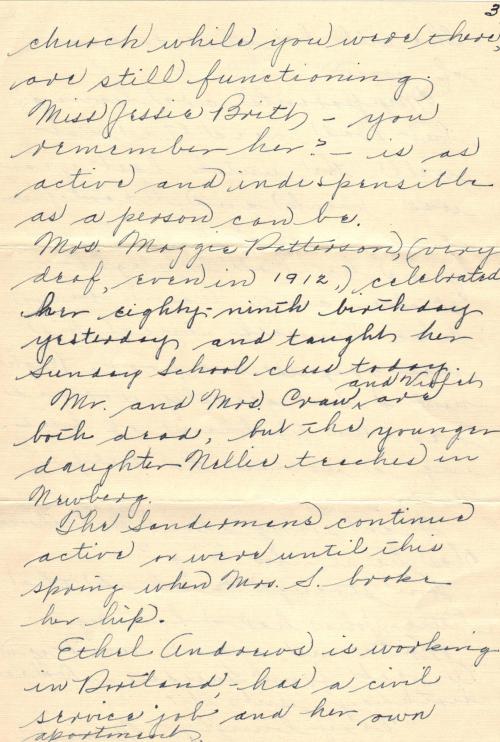 3
church while you were there,
are still functioning.
Miss Jessie Britt - you
remember her? - is as
active and indespensible
as a person can be.
Mrs. Maggie Patterson, (very
deaf, even in 1912,) celebrated
her eighty-ninth birthday
yesterday and taught her
Sunday School class today.
and Violet
Mr. and Mrs. Craw, are
both dead, but the younger
daughter Nellie teaches in
Newberg.
The Sandermans continue
active or were until this
spring when Mrs. S. broke
her hip.
Ethel Andrews is working
in Portland, - has a civil
service job and her own
apartment.